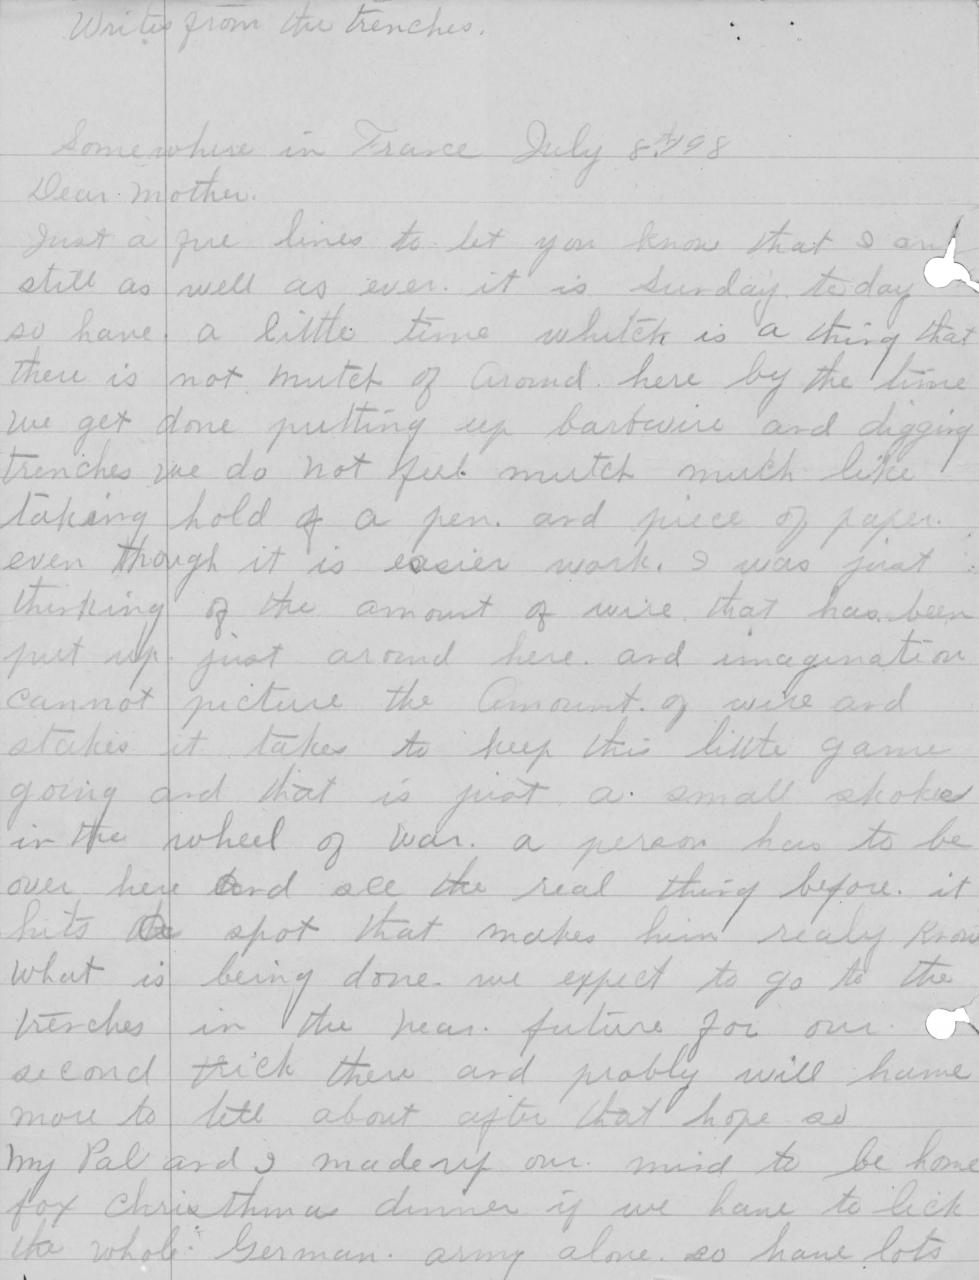 Writes from the trenches.
Somewhere in France July 8th 198
Dear Mother.
Just a fue lines to let you know that I am
still as well as ever. it is Sunday to day
so have a little time whitch is a thing that
there is not mutch of around here by the time
we get done putting up barbwire and digging
trenches we do not feel mutch much like
taking hold of a pen. and piece of paper.
even though it is easier work. I was just
thinking of the amount of wire that has been
put up just around here. and imagination
cannot picture the amount of wire and
stakes it takes to keep this little game
going and that is just a small skoke
in the wheel of war. a person has to be
over here and see the real thing before it
hits the spot that makes him realy know
what is being done. we expect to go to the
trenches in the near future for our
second trick there and probly will have
more to tell about after that hope so
My Pal and I made up our mind to be home
for Christhmas dinner if we have to lick
the whole German army alone. so have lots